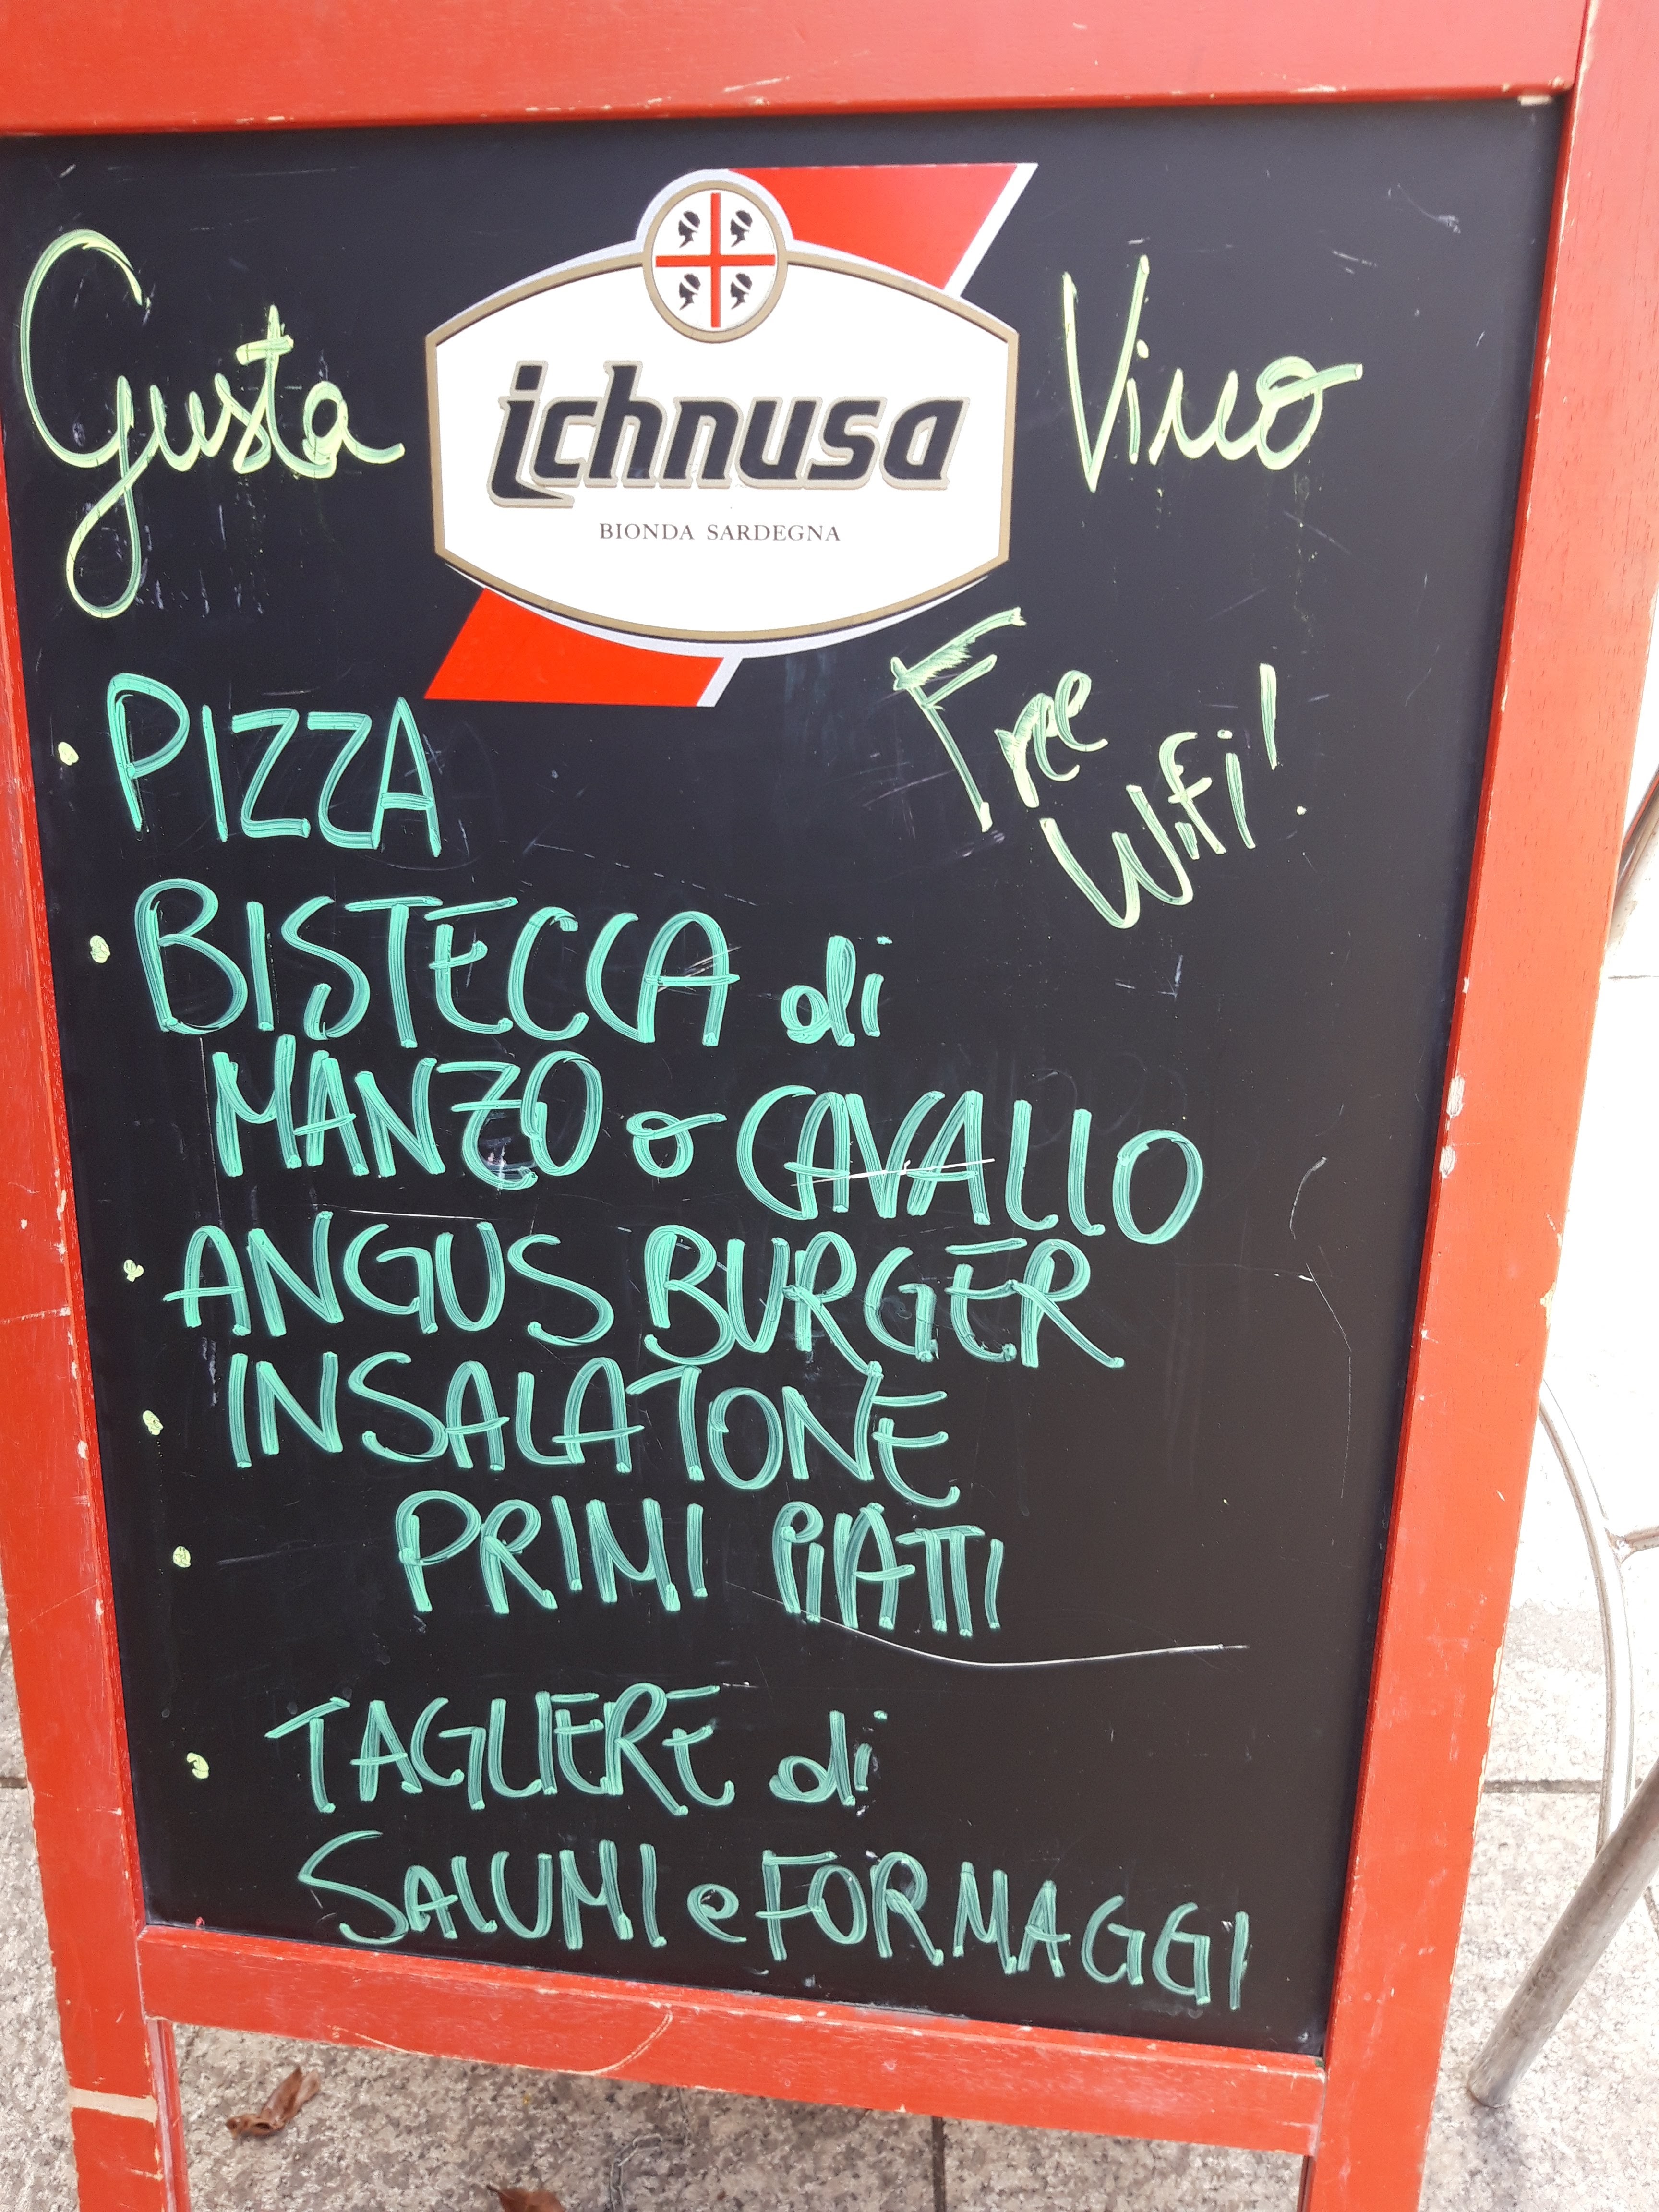 Gusta Vino
ichnusa
BIONDA SARDEGNA
Free
Wifi!
• PIZZA
• BISTECCA di
MANZO o CAVALLO
• ANGUS BURGER
• INSALATONE
• PRIMI PIATTI
• TAGLIERE di
SALUMI e FORMAGGI